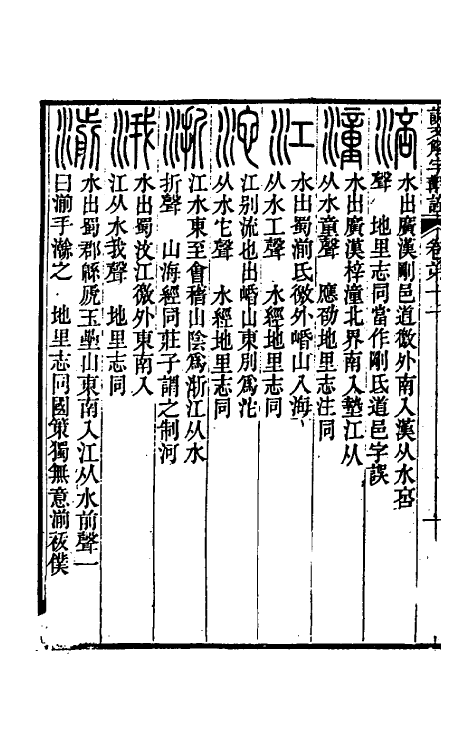 說文解字斠詮 卷第十一
涪 水出廣漢剛邑道徼外南入漢从水咅
聲 地里志同當作剛氐道邑字誤
潼 水出廣漢梓潼北界南入墊江从
水童聲 應劭地里志注同
江 水出蜀湔氐徼外崏山入海
从水工聲 水經地里志同
沱 江别流也出崏山東别為沱
从水它聲 水經地里志同
浙 江水東至會稽山陰為浙江从水
折聲 山海經同莊子謂之制河
涐 水出蜀汶江徼外東南入
江从水我聲 地里志同
湔 水出蜀郡緜虒玉壘山東南入江从水前聲一
曰湔手澣之 地里志同國策獨無意湔祓僕